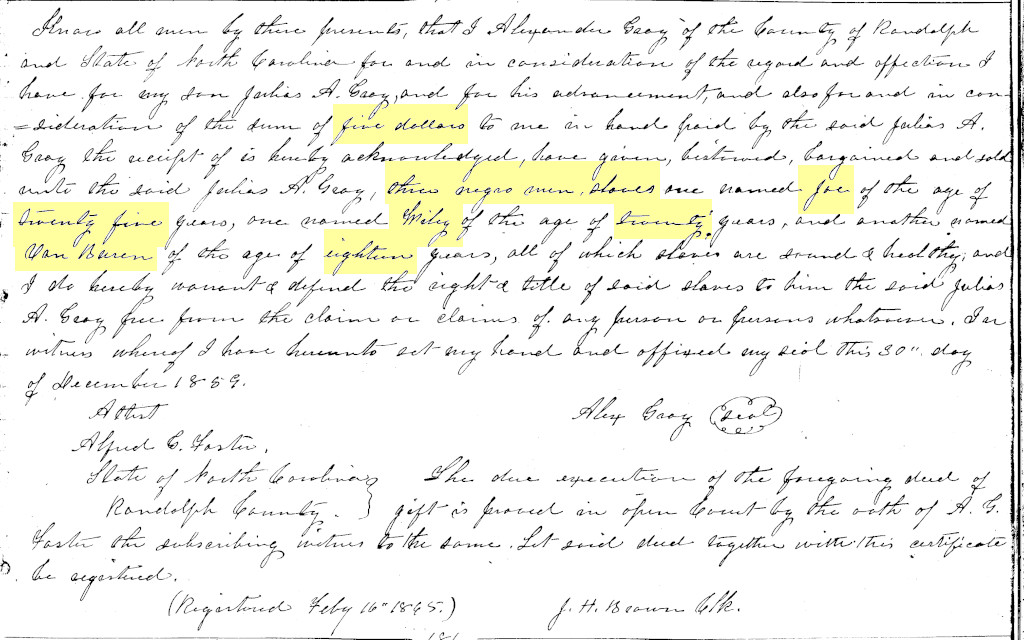 Know all men by these presents, that I Alexander Gray of the County of Randolph
and State of North Carolina for and in consideration of the regard and affection I
have for my son Julias A. Gray, and for his advancement, and also for and in con
=sideration of the sum of five dollars to me in hand paid by the said Julias A.
Gray the receipt of is hereby acknowledged, have given, bestowed, bargained and sold
unto the said Julias A. Gray, three negro men, slaves one named Joe of the age of
twenty five years, one named Wiley of the age of twenty years, and another named
Van Buren of the age of eighteen years, all of which slaves are sound & healthy; and
I do hereby warrant & defend the right & title of said slaves to him the said Julias
A. Gray free from the claim or claims of any person or persons whatsoever. In
witness whereof I have hereunto set my hand and affixed my seal this 30" day
of December 1859.
Attest Alex Gray (seal)
Alfred C. Foster.
State of North Carolina } The due execution of the foregoing deed of
Randolph County. } gift is proved in open Court by the oath of A. G.
Foster the subscribing witness to the same. Let said deed together with this certificate
be registered.
(Registered Feby 16" 1865.) J. H. Brown Clk.